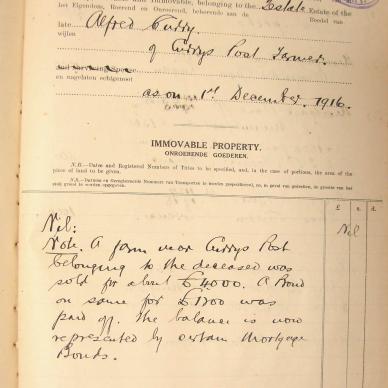 and Immovable, belonging to the Estate Estate of the
het Eigendom, Roerend en Onroerend, behorende aan de Boedel van
late Alfred Curry.
wijlen
of Currys Post Farmer.
and Surviving Spouse
en nagelaten echtgenoot
as on 1st December, 1916.
IMMOVABLE PROPERTY.
ONROERENDE GOEDEREN.
N.B.—Dates and Registered Numbers of Titles to be specified, and, in case of portions, the area of the
piece of land to be given.
N.B.—Datums en Geregistreerde Nommers van Transporten moeten gespecificeerd, en, in geval van gedeelten, de grootte van het
stuk grond te worden opgegeven.
£ s. d.
Nil: Nil
Note. A farm near Currys Post
belonging to the deceased was
sold for about £4000. A Bond
on same for £1700 was
paid off. The balance is now
represented by certain Mortgage
Bonds.